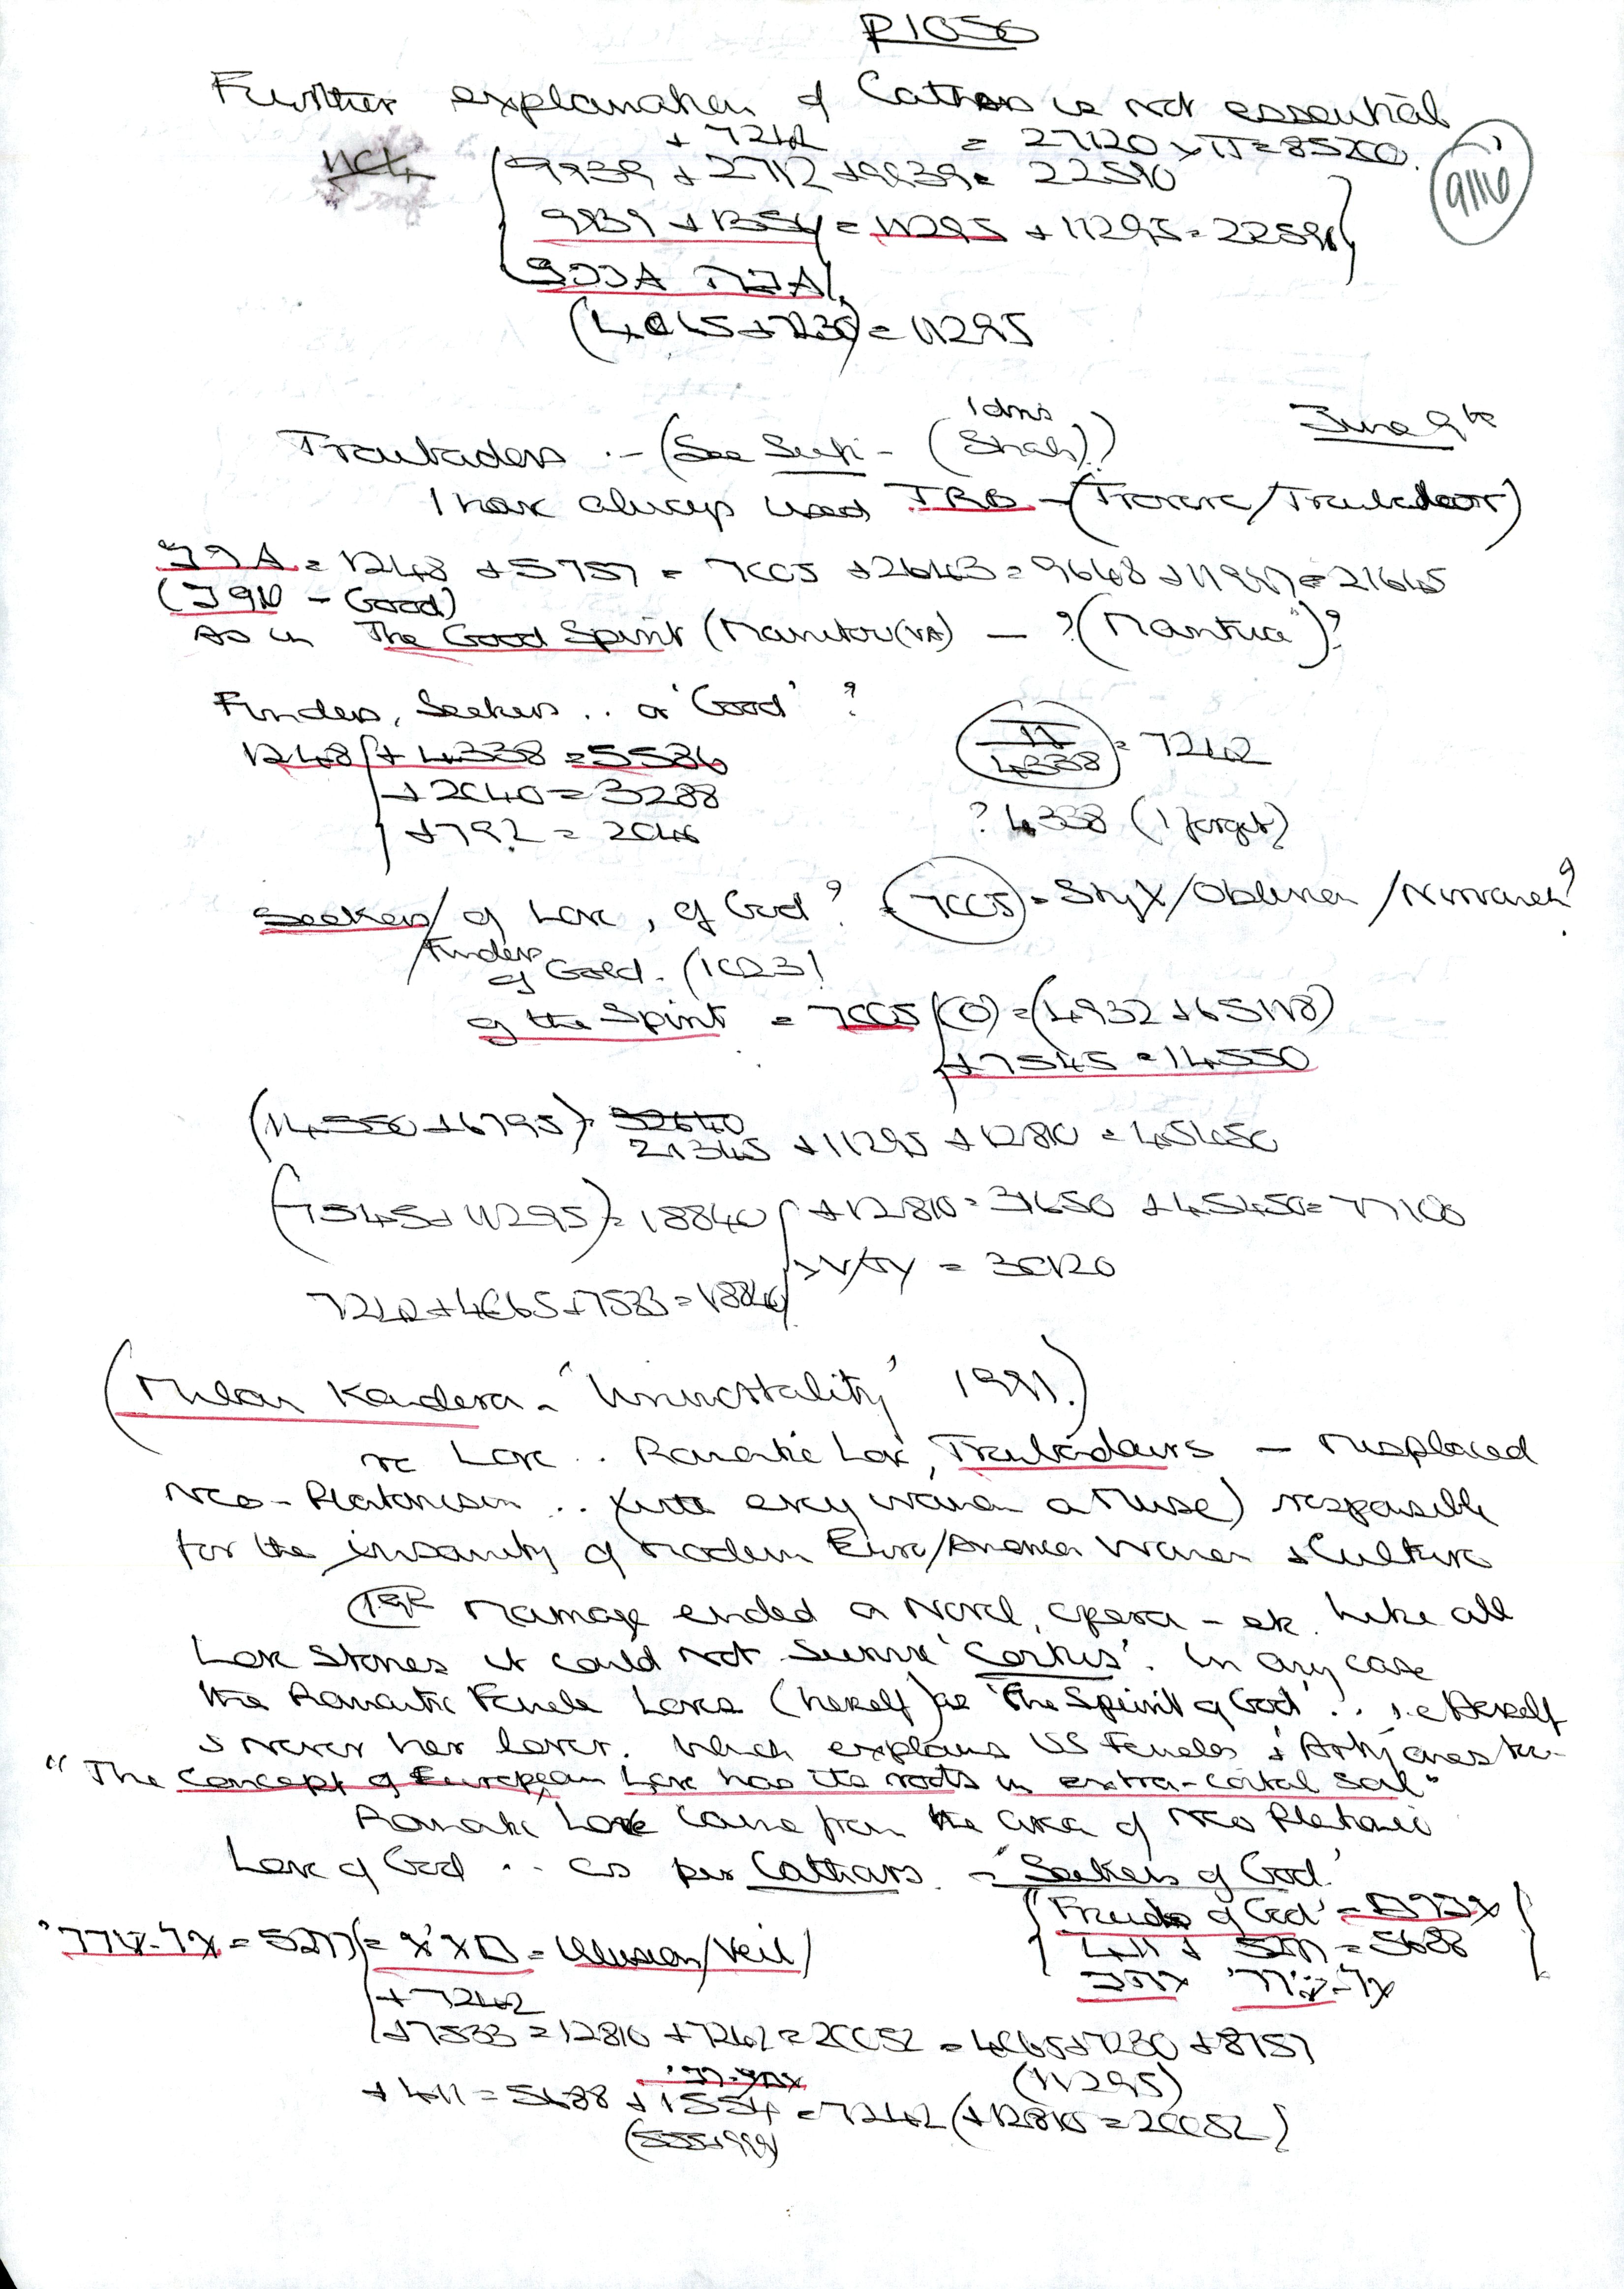 P1050
Further explanation of Cathars is not essential
+ 7242 = 27120 x π = 85200.
9939 + 2712 + 9939 = 22590
9116
9939 + 1354 = 11295 + 11295 = 22590
(4065 + 7230) = 11295
June 9th
Idries
Troubadors - (See Sufi - (Shah))
I have always used TRB - (Trovere/Troubadoor)
= 1248 + 5757 = 7005 + 2643 = 9648 + 11997 = 21645
- Good)
As in The Good Spirit (Manitou(VA) - ?("Mantua")?
Finders, Seekers .. or 'Good' ?
1248 + 4338 = 5586
π / 4338 = 7242
+ 2040 = 3288
+ 792 = 2046
? 4338 (I forget)
Seekers / of Love, of God? = 7005 = Styx/Oblivion/Nirvanah?
Finders
of Gold. (1023)
of the Spirit = 7005 (0) = (4932 + 65118)
+ 7545 = 14550
(14550 + 6795) = 32640
21345 + 11295 + 12810 = 45450
(7545 + 11295) = 18840 + 12810 = 31650 + 45450 = 77100
= 30120
7242 + 4065 + 7533 = 18840
(Milan Kundera - 'Immortality' 1991.)
re Love .. Romantic Love, Troubadours - misplaced
Neo-Platonism .. (with every woman a Muse) responsible
for the insanity of modern Euro/American Women & Culture
Marriage ended a Novel, opera - etc. Like all
Love Stories it could not Survive 'Coitus'. In any case
the Romantic Female Loves (herself) as 'The Spirit of God' .. i.e. Herself
& never her lover. Which explains US Females & Arty ones too.
"The Concept of European Love has its roots in extra-coital soil"
Romantic Love came from the area of Neo Platonic
Love of God .. as per Cathars. - 'Seekers of God.'
'Friends of God' =
= 5277 = = Illusion/Veil
411 + 5277 = 5688
+ 7242
+ 7533 = 12810 + 7242 = 20052 = 4065 + 7230 + 8757
(11295)
+ 411 = 5688 + 1554 = 7242 (+ 12810 = 20052)
(555 + 999)